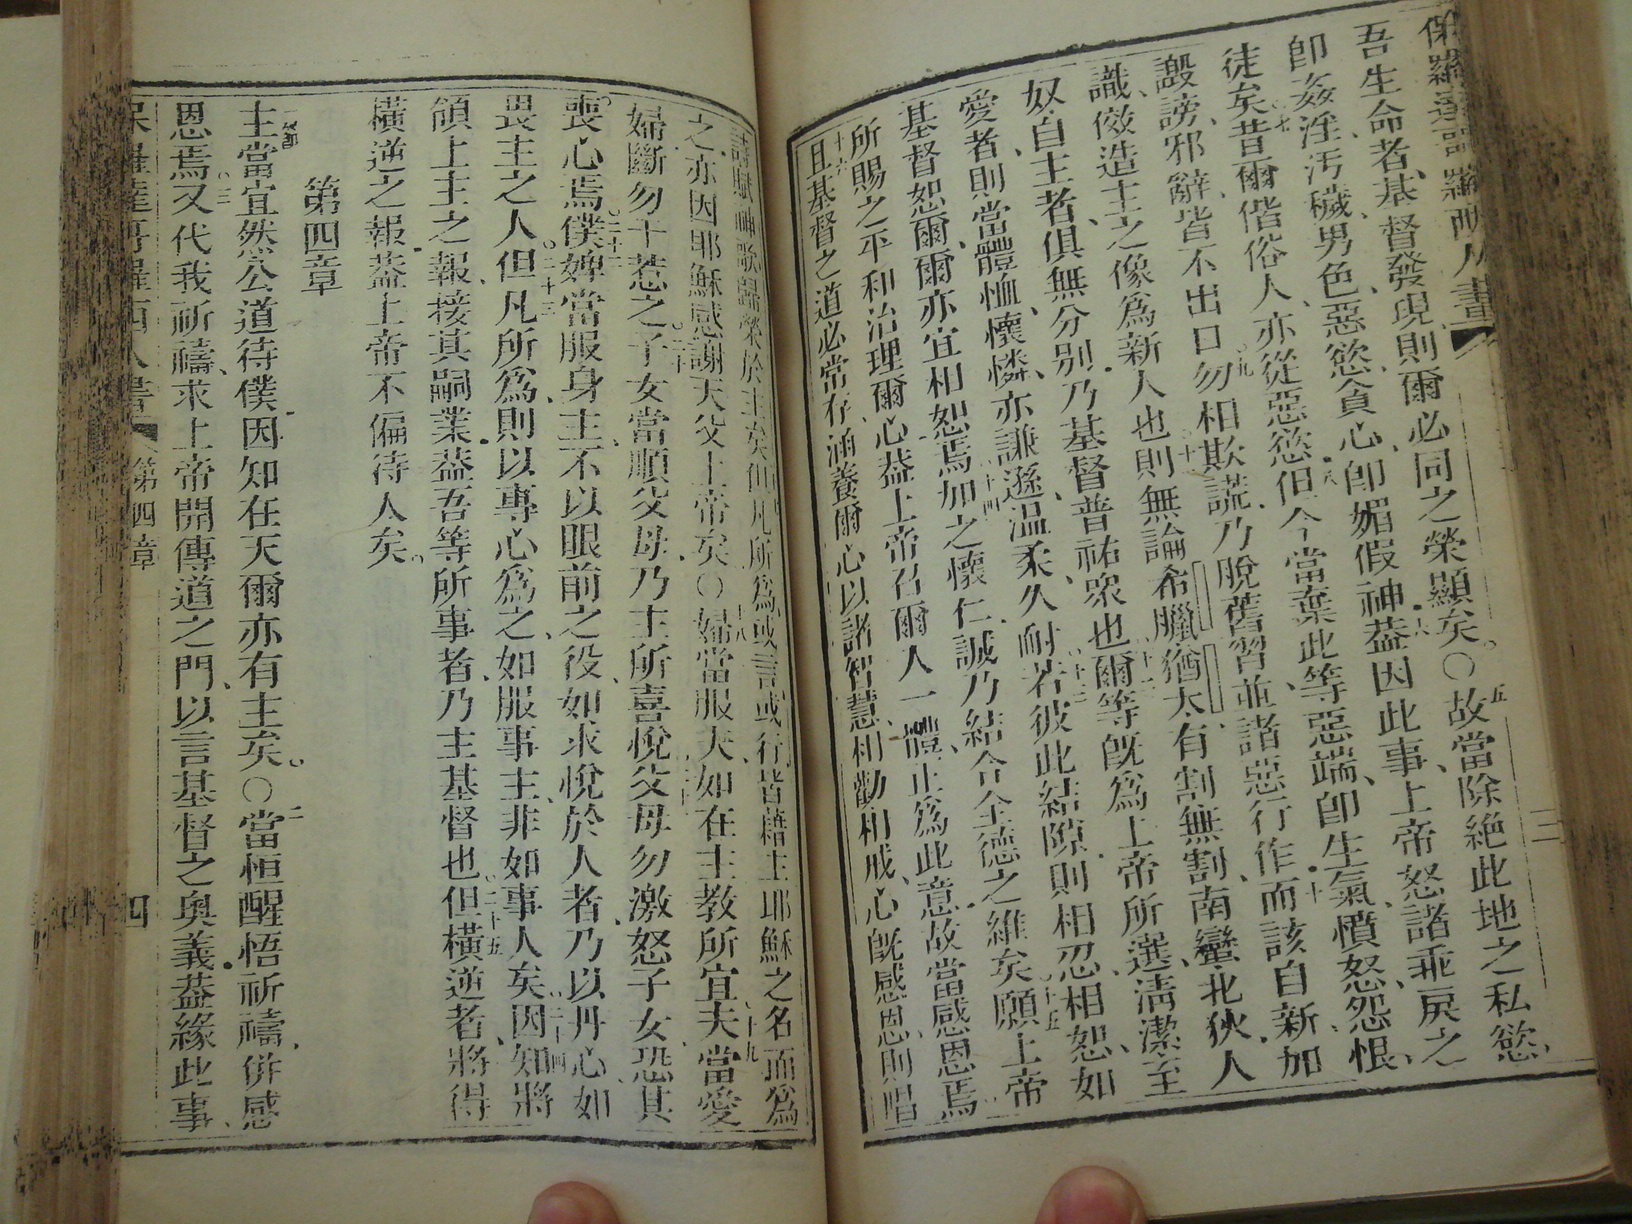 吾生命者、基督發現、則爾必同之榮顯矣。○五故當除絶此地之私慾、
卽姦淫、汚穢、男色、惡慾、貪心、卽媚假神。六葢因此事、上帝怒諸乖戾之
徒矣。七昔爾偕俗人、亦從惡慾。八但今當棄此等惡端、卽生氣、憤怒、怨恨、
譭謗、邪辭、皆不出口。九勿相欺謊、乃脫舊習、並諸惡行作。十而該自新、加
識、傚造主之像、爲新人也。十一則無論希臘、猶太、有割、無割、南蠻、北狄、人
奴、自主者、俱無分別。乃基督普祐衆也。十二爾等旣爲上帝所選、淸潔、至
愛者、則當體恤、懷憐、亦謙遜、温柔、久耐。十三若彼此結隙、則相忍、相恕。如
基督恕爾、爾亦宜相恕焉。十四加之懷仁誠、乃結合全德之維矣。十五願上帝
所賜之平和治理爾心。葢上帝召爾人一體、正爲此意。故當感恩焉。
十六且基督之道必常存涵養爾心、以諸智慧、相勸、相戒、心旣感恩、則唱
詩賦呻歌、歸榮於主矣。但凡所爲、或言、或行、皆藉主耶穌之名而爲
之、亦因耶穌感謝天父上帝矣。○十八婦當服夫、如在主教所宜。十九夫當愛
婦、斷勿干惹之。二十子女當順父母、乃主所喜悅。二十一父母勿激怒子女、恐其
喪心焉。二十二僕婢當服身主、不以眼前之役、如求悅於人者、乃以丹心、如
畏主之人。二十三但凡所爲、則以專心爲之、如服事主、非如事人矣。二十四因知將
領上主之報、接其嗣業。葢吾等所事者、乃主基督也。二十五但橫逆者、將得
橫逆之報。葢上帝不偏待人矣。
第四章
主當宜然公道待僕、因知在天爾亦有主矣。○二當恒醒悟祈禱、併感
恩焉。三又代我祈禱、求上帝開傳道之門、以言基督之奥義。葢緣此事、
第四章
四